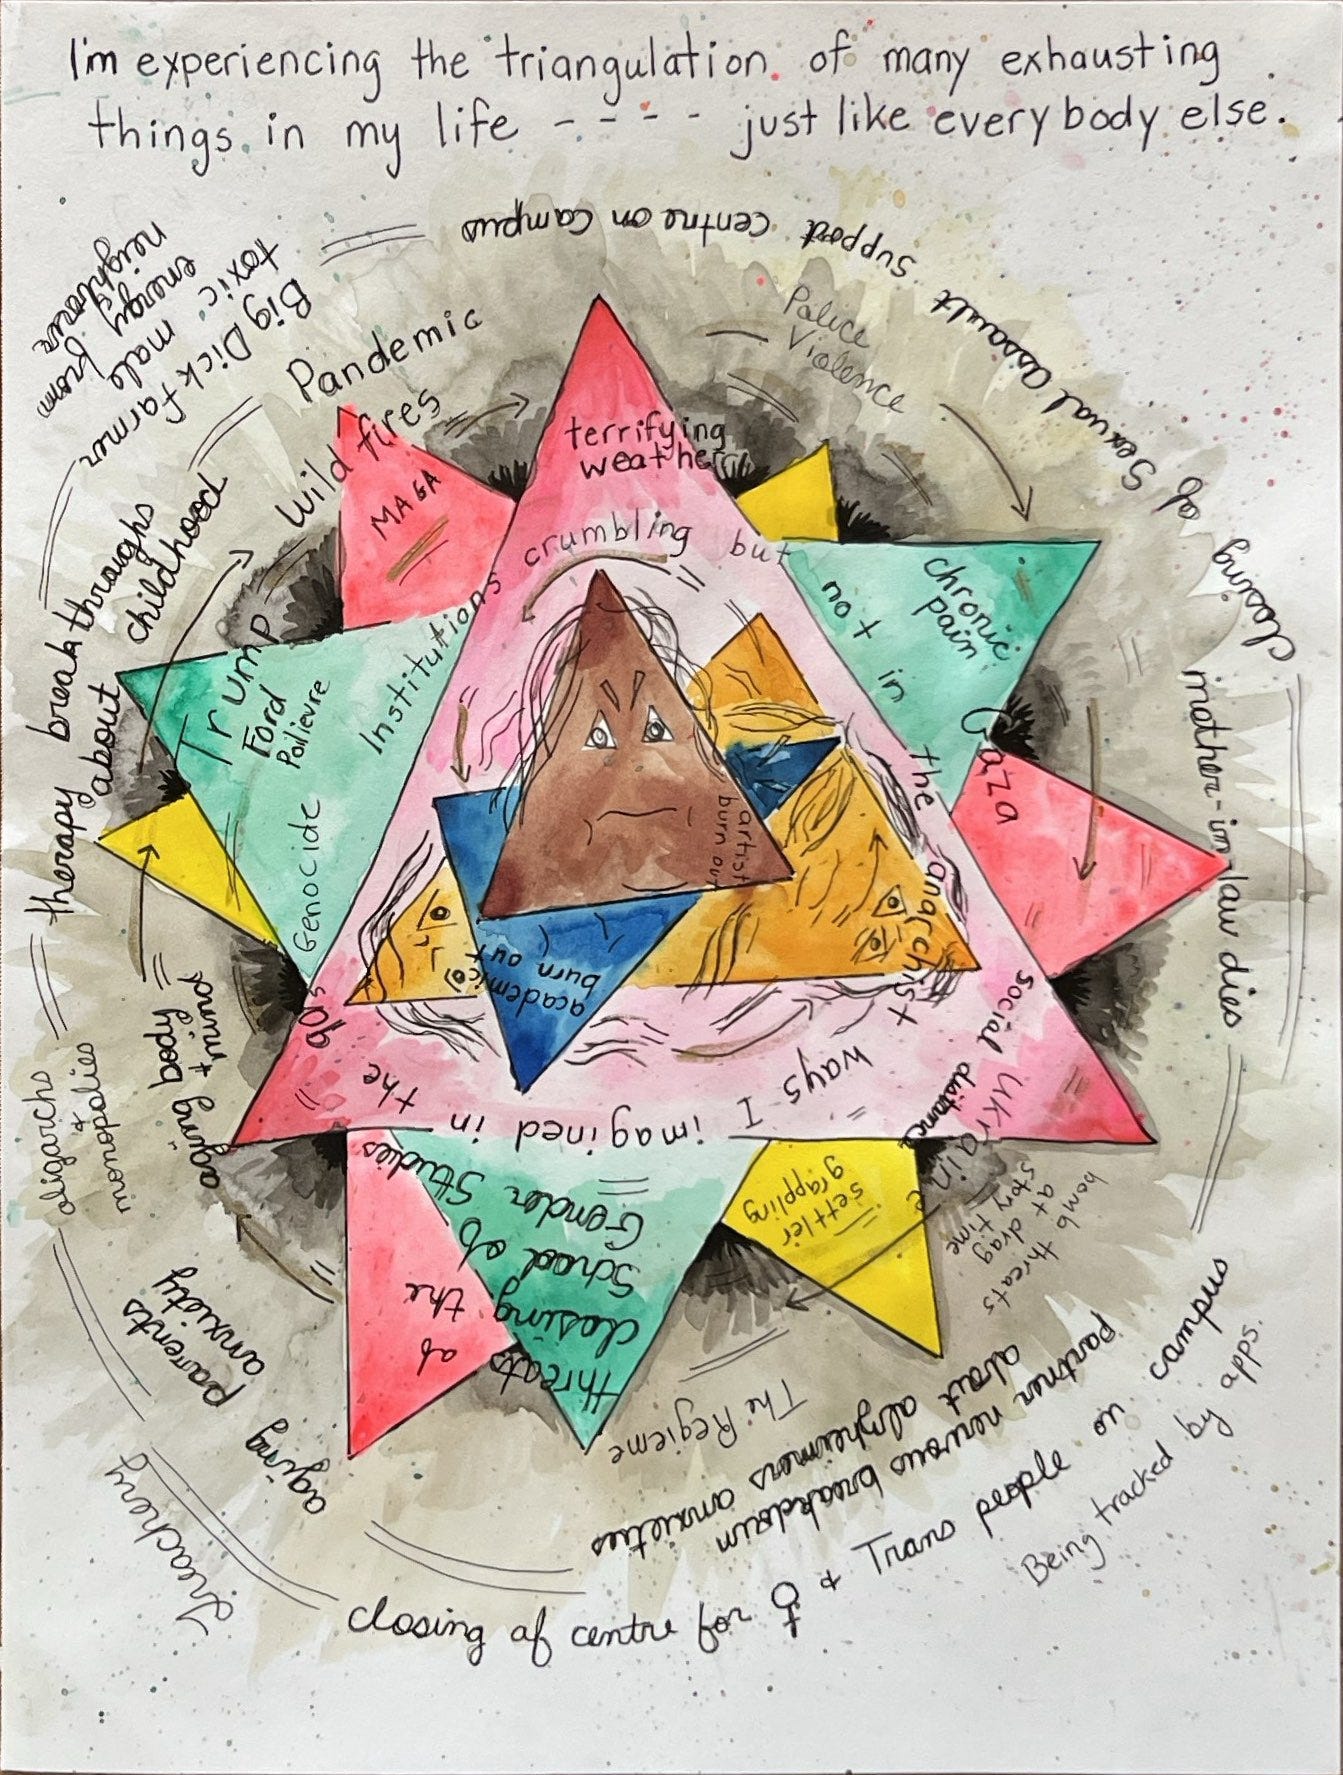 I'm experiencing the triangulation of many exhausting
things in my life - - - - just like everybody else.
closing of Sexual assault support centre on campus
Big Dick farmer
toxic male
energy from
neighbours
Pandemic
Wild fires
Police
Violence
MAGA
terrifying
weather
Institutions crumbling but not in the anarchist ways I imagined in the 90s
chronic
pain
Gaza
Trump
Ford
Poilievre
Genocide
artist
burn out
academic
burn out
therapy breakthroughs
about childhood
mother-in-law dies
social distance
Ukraine
settler
grappling
bomb threats
at drag
story time
aging body
oligarchs
+
monopolies
threats of the
closing
School of
Gender Studies
The Regieme
aging parents
anxiety
treachery
partner nervous breakdown
about alzheimers anxieties
closing of centre for ♀ + Trans people on campus
Being tracked by apps.